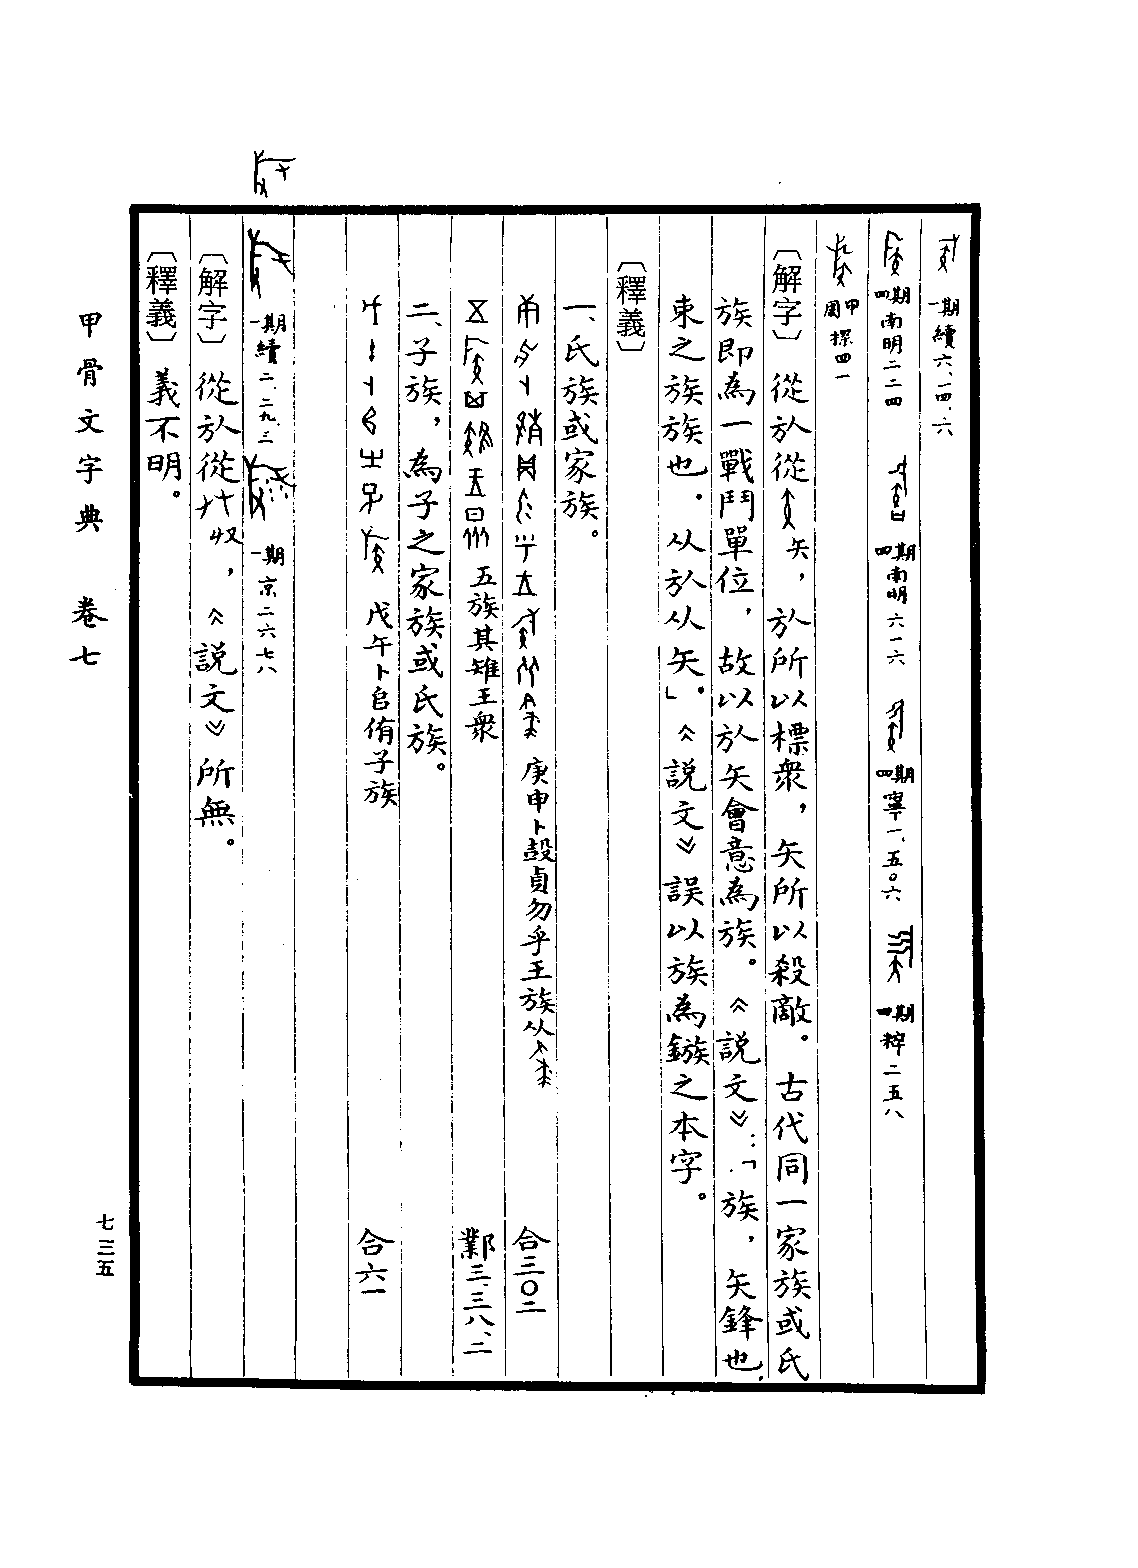 一期續六.一四.六
四期南明二二四 四期南明六一六 四期寧一.五〇六 四期粹二五八
周甲探四一
〔解字〕從㫃從矢，㫃所以標衆，矢所以殺敵。古代同一家族或氏
族即為一戰鬥單位，故以㫃矢會意為族。《說文》：「族，矢鋒也，
束之族族也．从㫃从矢」．《說文》誤以族為鏃之本字。
〔釋義〕
一、氏族或家族。
庚申卜㱿貞勿乎王族从 合三〇二
五族其雉王衆 鄴三.三八.二
二、子族，為子之家族或氏族。
戊午卜㠯侑子族 合六一
一期續二.二九.三 一期京二六七八
〔解字〕從㫃從収，《說文》所無。
〔釋義〕義不明。
甲骨文字典 卷七
七三五